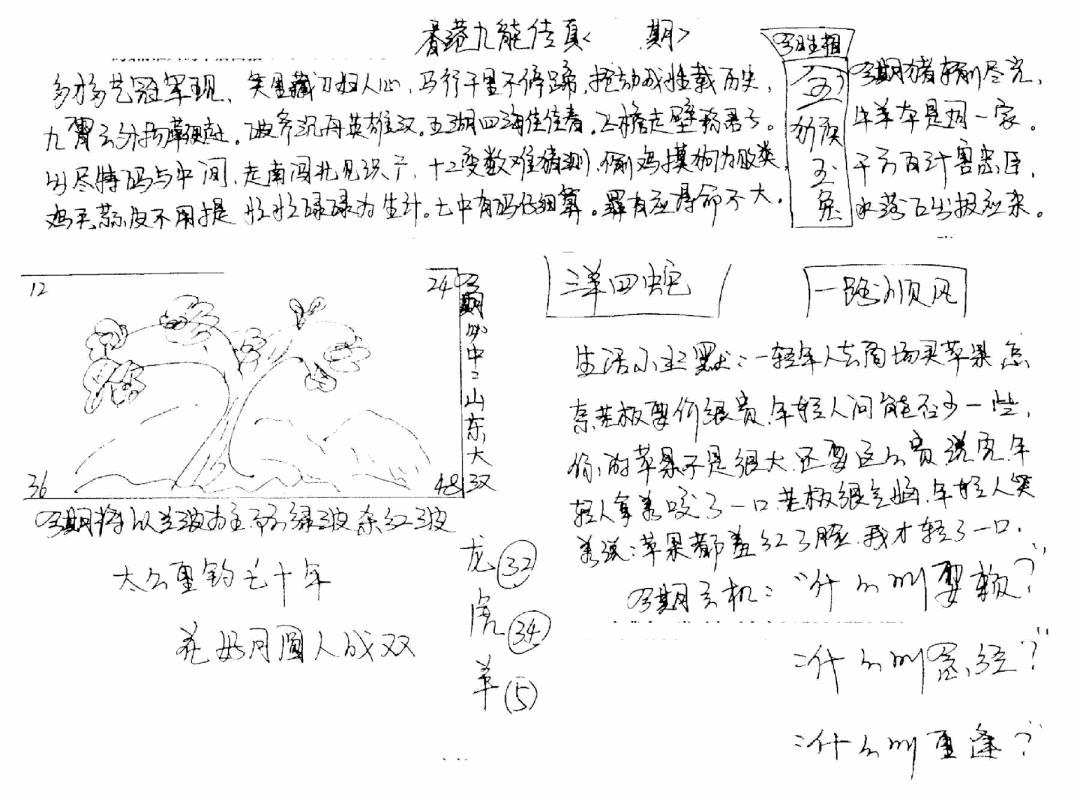 香港九能传真<　　期>
今期生肖
多才多艺冠军现、笑里藏刀妇人心,马行千里不停蹄,挖动戏性载历史,
九霄云外扬鞭。破斧沉舟英雄汉。五湖四海佳佳春。飞檐走壁称君子。
出尽特码与中间,走南闯北见识广,十二变数难猜测,偷鸡摸狗为败类,
鸡毛蒜皮不用提 忙忙碌碌为生计。七中有码仔细算。罪有应得命不大。
今期猪狗尽完,
牛羊本是同一家。
千方百计害忠臣,
水落石出报应来。
玉
兔
12
24
36
48
今期必中:山东大汉
今期将以兰波为主而绿波杂红波
太公垂钓七十年
花好月圆人成双
龙 32
虎 34
羊 5
三羊四蛇
一路顺风
生活小幽默:一轻年人去商场买苹果 怎
奈老板要价很贵,年轻人问能否少一些,
你的苹果不是很大,还要这么贵 说完 年
轻人拿着咬了一口 老板很气恼,年轻人笑
着说:苹果都羞红了脸,我才轻了一口.
今期玄机:“什么叫耍赖?”
:什么叫念经?”
:什么叫重逢?”